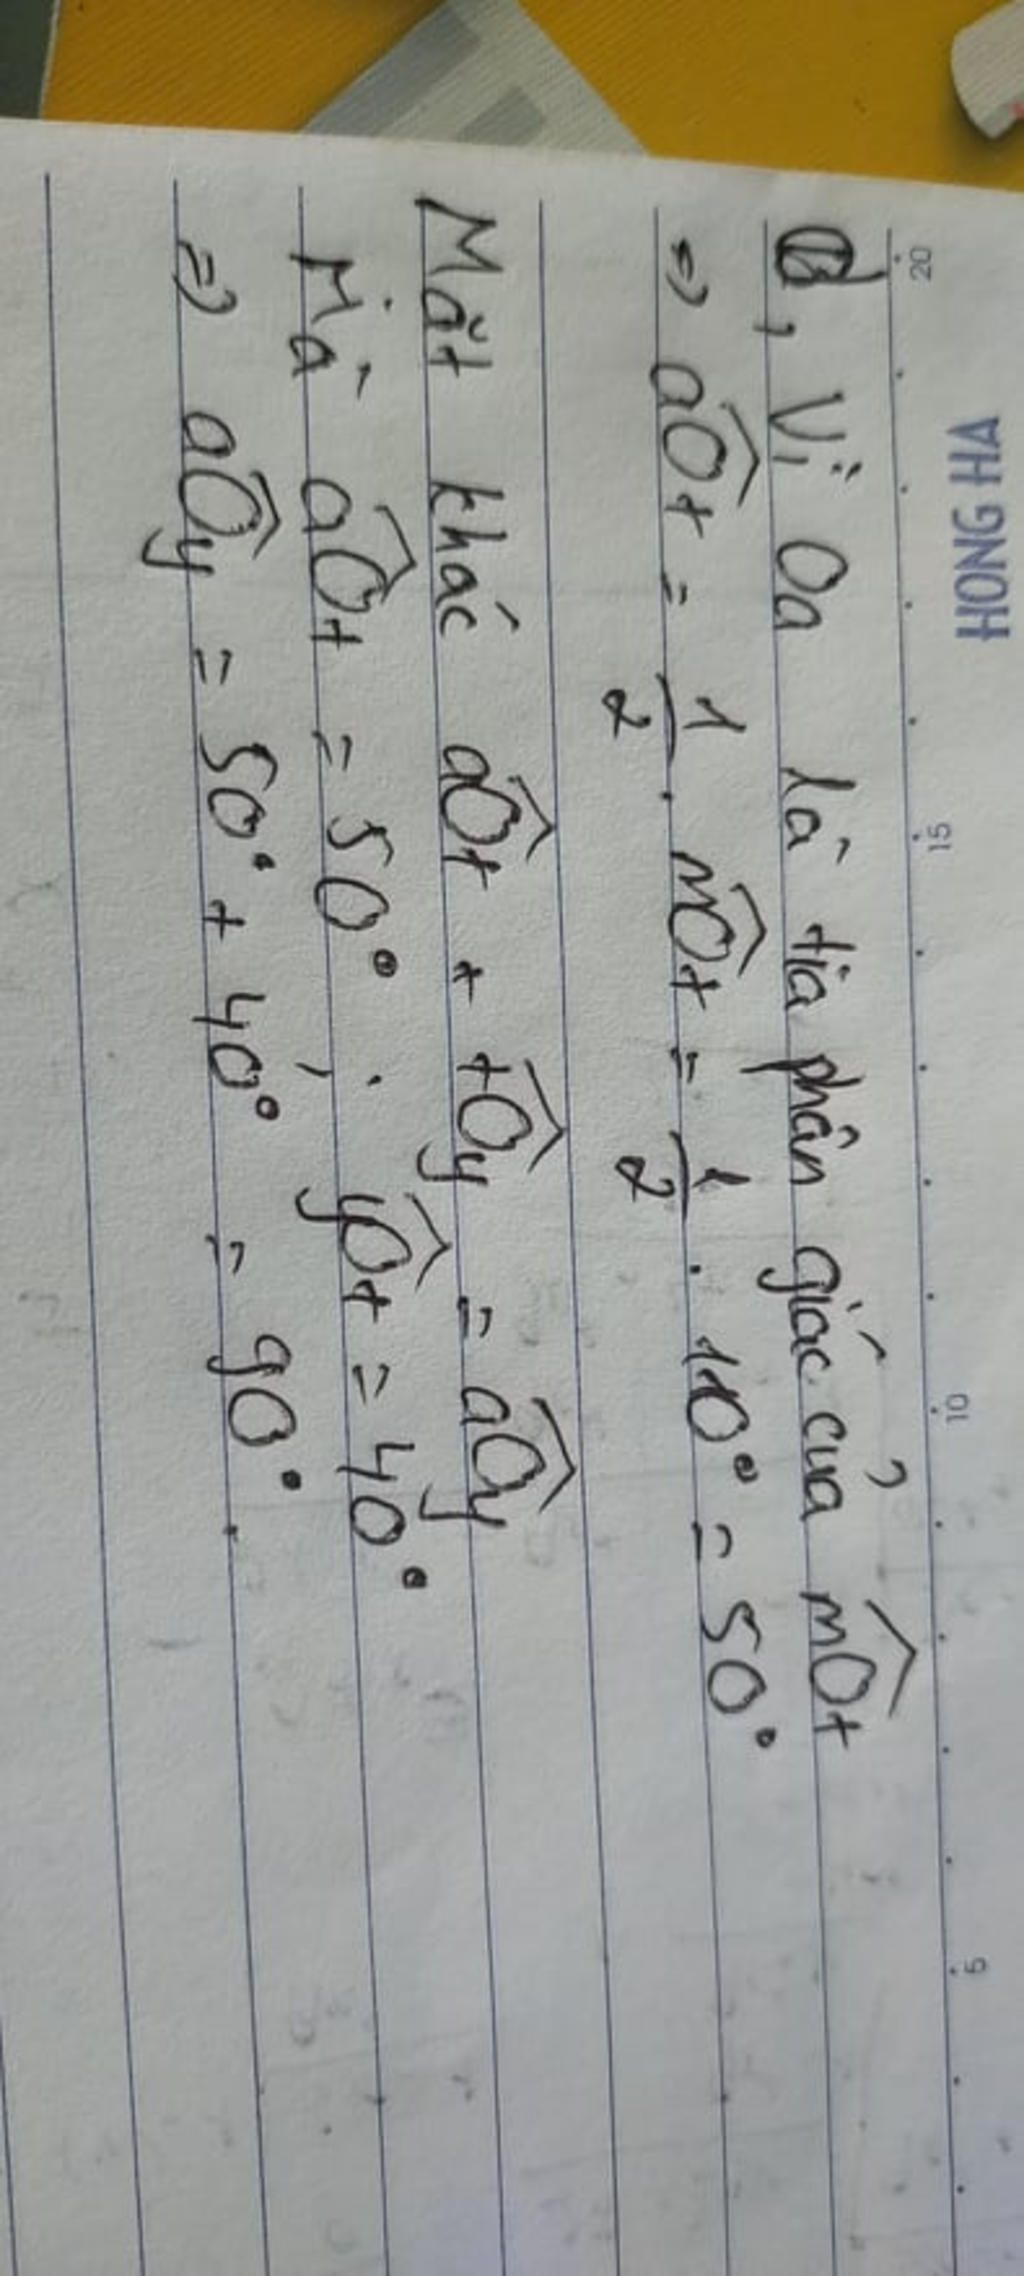 HONG HA
20 15 10 5
d, Vì Oa là tia phân giác của \widehat{mOt}
=> \widehat{aOt} = \frac{1}{2} . \widehat{mOt} = \frac{1}{2} . 110° = 50°
Mặt khác \widehat{aOt} + \widehat{tOy} = \widehat{aOy}
Mà \widehat{aOt} = 50° ; \widehat{yOt} = 40°
=> \widehat{aOy} = 50° + 40° = 90°.